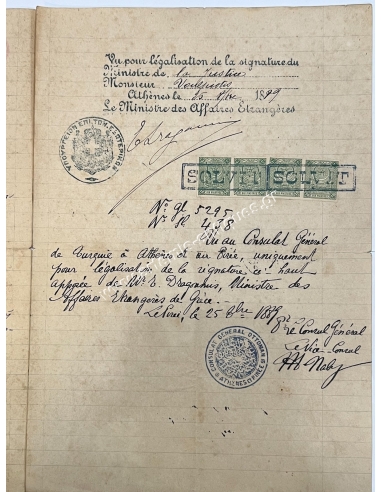 Vu pour légalisation de la signature du
Ministre de la Justice
Monsieur
Athènes le 25 1889
Le Ministre des Affaires Étrangères
ΥΠΟΥΡΓΕΙΟΝ ΕΠΙ ΤΩΝ ΕΞΩΤΕΡΙΚΩΝ
E Dragoumi
SOLVIT SOLVIT
Nº gl 5295
Nº sl 438
Vu au Consulat Général
de Turquie à Athènes et au Pirée, uniquement
pour légalisation de la signature ci haut
apposée de Mr E. Dragoumis, Ministre des
Affaires Etrangères de Grèce.
le 25 1889
Pr le Consul Général
Le Vice-Consul
CONSULAT GÉNÉRAL OTTOMAN
ATHÈNES & PIRÉE